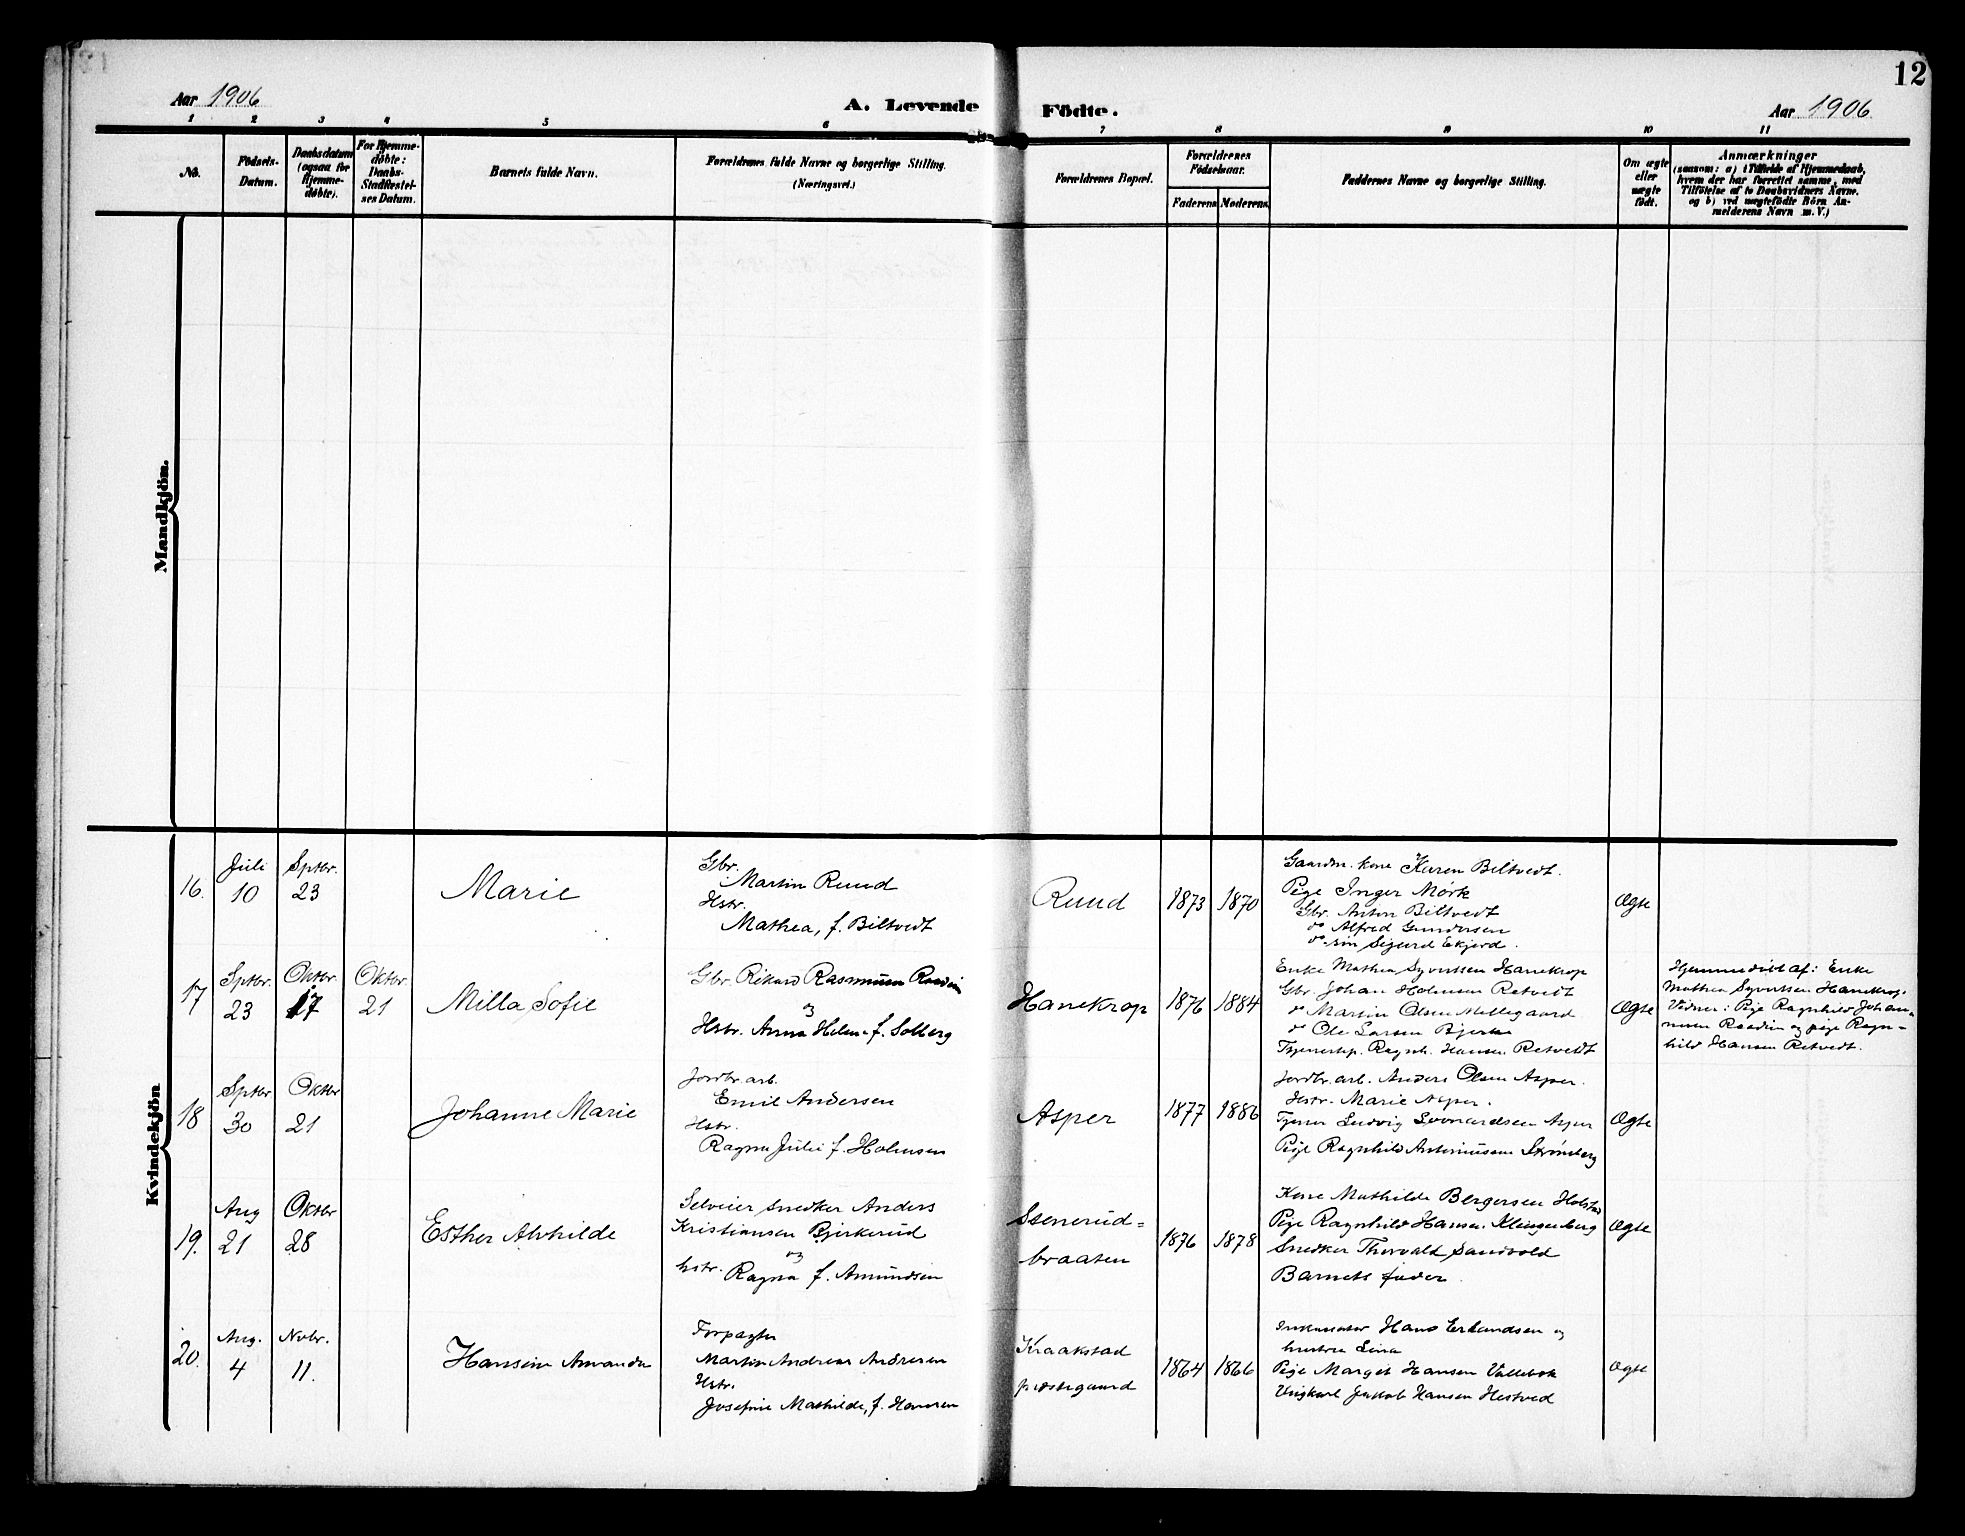 12
Aar 1906
A. Levende Födte.
Aar 1906
1 2 3 4 5 6 7 8 9 10 11
No.
Födsels-
Datum.
Daabsdatum
(ogsaa for
Hjemme-
döbte).
For Hjemme-
döbte:
Daabs-
Stadfæstel-
ses Datum.
Barnets fulde Navn.
Forældrenes fulde Navne og borgerlige Stilling.
(Næringsvei.)
Forældrenes Bopæl.
Forældrenes
Födselsaar.
Faderens Moderens
Faddernes Navne og borgerlige Stilling.
Om ægte
eller
uægte
födt.
Anmærkninger
(saasom: a) i Tilfælde af Hjemmedaab,
hvem der har forrettet samme, med
Tilföielse af to Daabsvidners Navne.
og b) ved uægtefödte Börn An-
melderens Navn m. V.)
Mandkjön.
Kvindekjön
16.
Juli
10
Sptbr.
23
Marie
Gbr.
Martin Ruud
Hstr.
Mathea, f. Biltvedt
Ruud
1873
1870
Gaardm. kone Karen Biltvedt.
Pige Inger Mørk
Gbr. Anton Biltvedt
do Alfred Gundersen
do Sigurd Ekjord.
Ægte
17
Sptbr.
23
Oktbr.
17
Oktbr.
21
Milla Sofie
Gbr. Rikard Rasmussen
og
Hstr. Anna Helene f. Solberg
Hanekrop
1876
1884
Enke Mathea Syvertsen Hanekrop
Gbr. Johan Holmsen Retvedt
do Martin Olsen Mellegaard
do Ole Larsen Bjerke
Tjenestep. Ragnh. Hansen Retvedt
Ægte
Hjemmedöbt af: Enke
Mathea Syvertsen Hanekrop.
Vidner: Pige Ragnhild Johan-
nesen og pige Ragn-
hild Hansen Retvedt.
18
Sptbr
30
Oktbr
21
Johanne Marie
Jordbr. arb.
Emil Andersen
Hstr.
Ragna Julie f. Holmsen
Asper
1877
1886
Jordbr. arb. Anders Olsen Asper.
Hstr. Marie Asper.
Tjener Ludvig Asper
Pige Ragnhild Strømberg
Ægte
19.
Aug
21
Oktbr
28
Esther Alvhilde
Selveier snedker Anders
Kristiansen Bjerkerud
og
hstr. Ragna f. Amundsen
Stenerud-
braaten
1876
1878
Kone Mathilde Bergersen Holstad
Pige Ragnhild Hansen Klingenberg
Snedker Thorvald Sandvold
Barnets fader.
Ægte
20.
Aug.
4
Nvbr.
11.
Hansine Amanda
Forpagter
Martin Andreas Andresen
Hstr.
Josefine Mathilde, f. Hansen
Kraakstad
præstegaard
1864
1866
Hans Erlandsen og
hustru Lina
Pige Margit Hansen
Ungkarl Jakob Hansen Hestved
Ægte